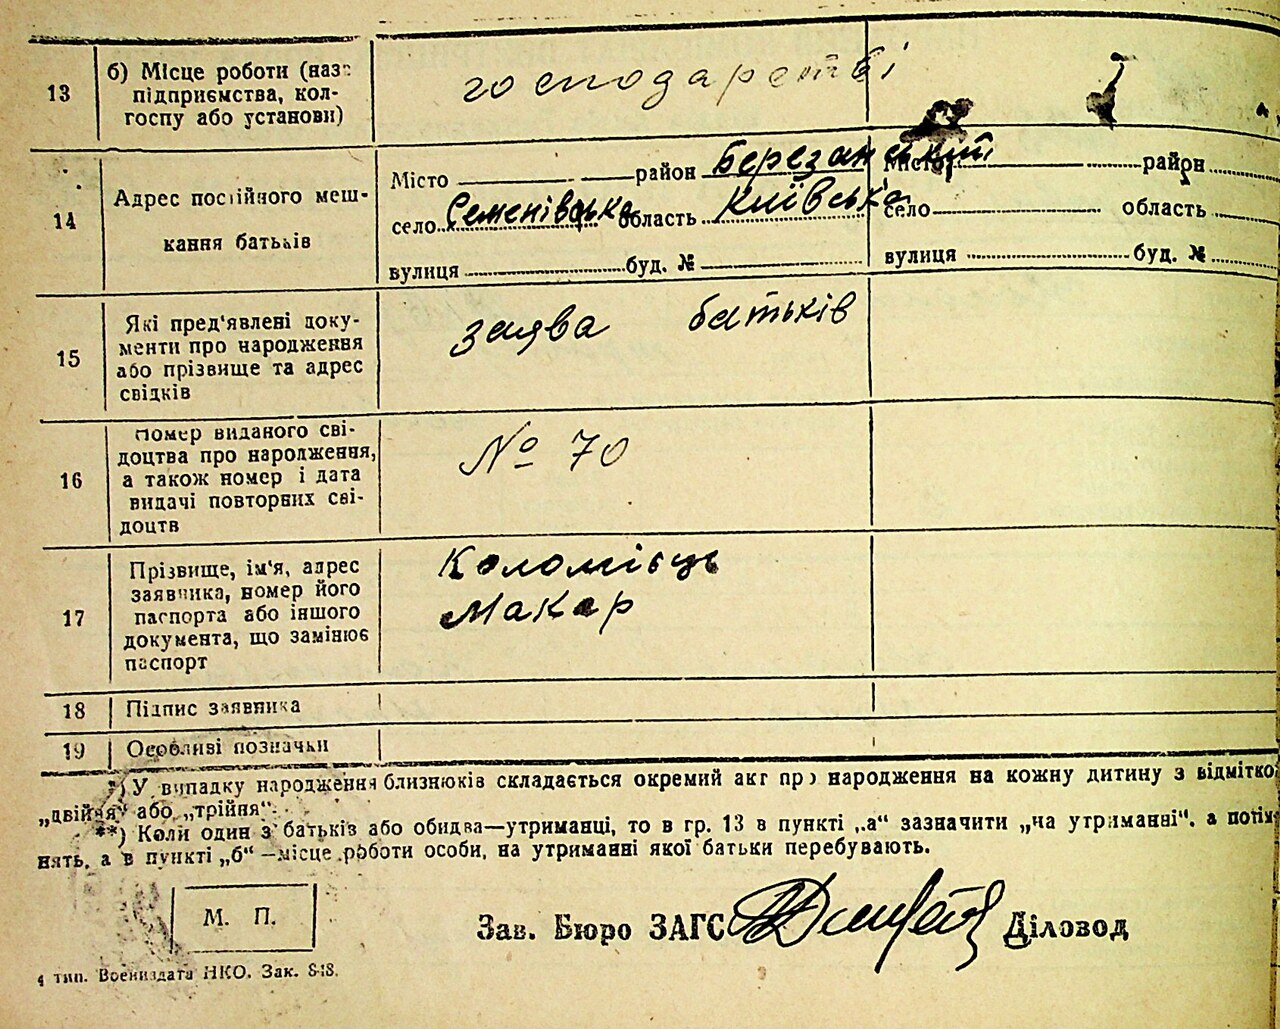 13
б) Місце роботи (назв
підприємства, кол-
госпу або установи)
господарстві
14
Адрес постійного меш-
кання батьків
Місто район Березанський
село Семенівська область Київська
вулиця буд. №
Місто район
село область
вулиця буд. №
15
Які пред'явлені доку-
менти про народження
або прізвище та адрес
свідків
заява батьків
16
Номер виданого сві-
доцтва про народження,
а також номер і дата
видачі повторних сві-
доцтв
№ 70
17
Прізвище, ім'я, адрес
заявника, номер його
паспорта або іншого
документа, що замінює
паспорт
Коломієць
Макар
18
Підпис заявника
19
Особливі позначки
*) У випадку народження близнюків складається окремий акт про народження на кожну дитину з відміткою
„двійня" або „трійня".
**) Коли один з батьків або обидва—утриманці, то в гр. 13 в пункті „а" зазначити „на утриманні", а потім
нять, а в пункті „б" —місце роботи особи, на утриманні якої батьки перебувають.
М. П.
Зав. Бюро ЗАГС Діловод
4 тип. Воениздата НКО. Зак. 848.